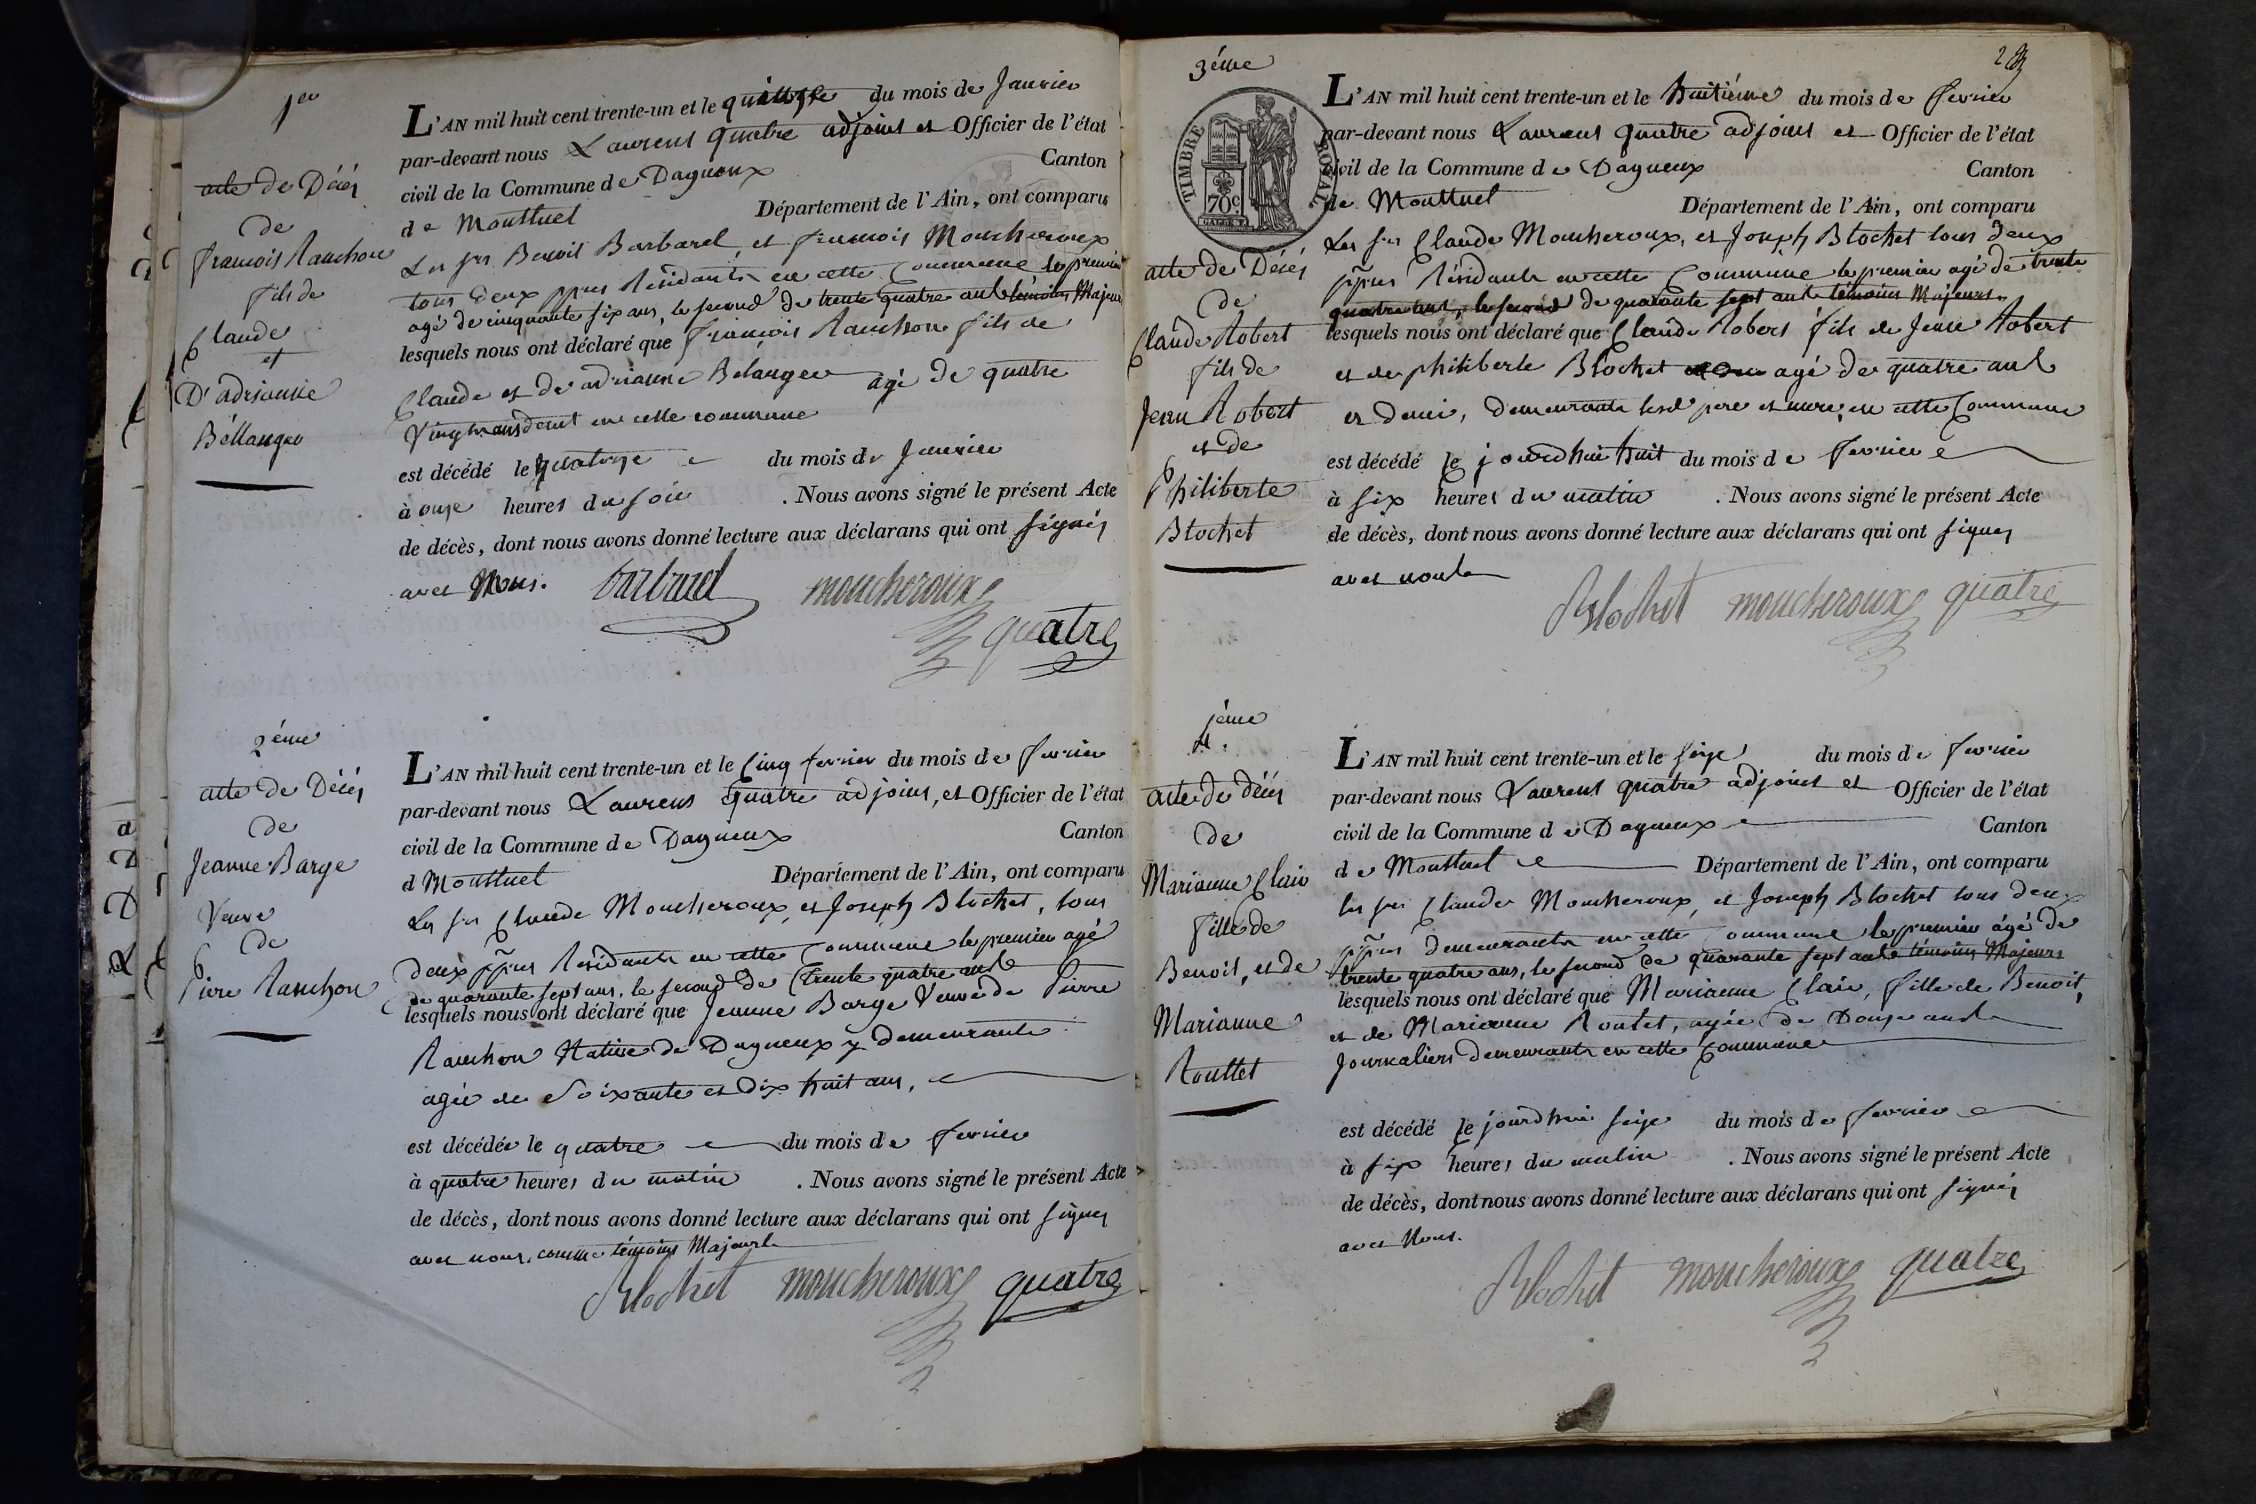 1er
acte de Décés
de
francois Ranchon
fils de
Claude
et
D'adrianne
Béllanger
L'AN mil huit cent trente-un et le quinze du mois de Janvier
par-devant nous Laurent quatre adjoint et Officier de l'état
civil de la Commune de Dagneux Canton
de Montluel Département de l'Ain, ont comparu
Les srs Benoit Barbarel et francois Moucheroux
tous deux ppres Résidants en cette Commune le premier
agé de cinquante six ans, le second de trente quatre ans témoins Majeurs
lesquels nous ont déclaré que francois Ranchon fils de
Claude et de adrianne Belanger agé de quatre
Vingt ans demt en cette commune
est décédé le quatorze du mois de Janvier
à onze heures du soir . Nous avons signé le présent Acte
de décès, dont nous avons donné lecture aux déclarans qui ont signés
avec Nous. barbarel moucheroux
quatre
2éme
acte de Décés
de
Jeanne Barge
Veuve
de
Pierre Ranchon
L'AN mil huit cent trente-un et le Cinq fevrier du mois de fevrier
par-devant nous Laurens quatre adjoint, et Officier de l'état
civil de la Commune de Dagneux Canton
d Montluel Département de l'Ain, ont comparu
Les srs Claude Moucheroux, et Joseph Blochet, tous
deux ppres Résidants en cette Commune le premier agé
de quarante sept ans, le second de trente quatre ans
lesquels nous ont déclaré que Jeanne Barge Veuve de Pierre
Ranchon Native de Dagneux y demeurante
agée de Soixante et Dix huit ans,
est décédée le quatre du mois de fevrier
à quatre heures du matin . Nous avons signé le présent Acte
de décès, dont nous avons donné lecture aux déclarans qui ont signés
avec nous, comme témoins Majeurs
Blochet moucheroux quatre
3éme
TIMBRE ROYAL
70c
acte de Décés
de
Claude Robert
fils de
Jean Robert
et de
Philiberte
Blochet
L'AN mil huit cent trente-un et le huitiéme du mois de fevrier
par-devant nous Laurent quatre adjoint et Officier de l'état
civil de la Commune de Dagneux Canton
de Montluel Département de l'Ain, ont comparu
Les srs Claude Moucheroux, et Joseph Blochet tous deux
ppres Résidants en cette Commune le premier agé de trente
quatre ans, le second de quarante sept ans témoins Majeurs
lesquels nous ont déclaré que Claude Robert fils de Jean Robert
et de philiberte Blochet agé de quatre ans
et demi, demeurants lesd pere et mere, en cette Commune
est décédé le jourdhui huit du mois de fevrier
à six heures du matin . Nous avons signé le présent Acte
de décès, dont nous avons donné lecture aux déclarans qui ont signés
avec nous
Blochet moucheroux quatre
4éme
acte de décés
de
Marianne Clair
fille de
Benoit, et de
Marianne
Routtet
L'AN mil huit cent trente-un et le seize du mois de fevrier
par-devant nous Laurent quatre adjoint et Officier de l'état
civil de la Commune de Dagneux Canton
de Montluel Département de l'Ain, ont comparu
les srs Claude Moucheroux, et Joseph Blochet tous deux
ppres demeurants en cette Commune le premier âgé de
trente quatre ans, le second de quarante sept ans témoins Majeurs
lesquels nous ont déclaré que Marianne Clair, fille de Benoit,
et de Marianne Routet, agée de Douze ans
Journaliers demeurants en cette Commune
est décédé le jourdhui seize du mois de fevrier
à six heures du matin . Nous avons signé le présent Acte
de décès, dont nous avons donné lecture aux déclarans qui ont signés
avec Nous.
Blochet moucheroux quatre